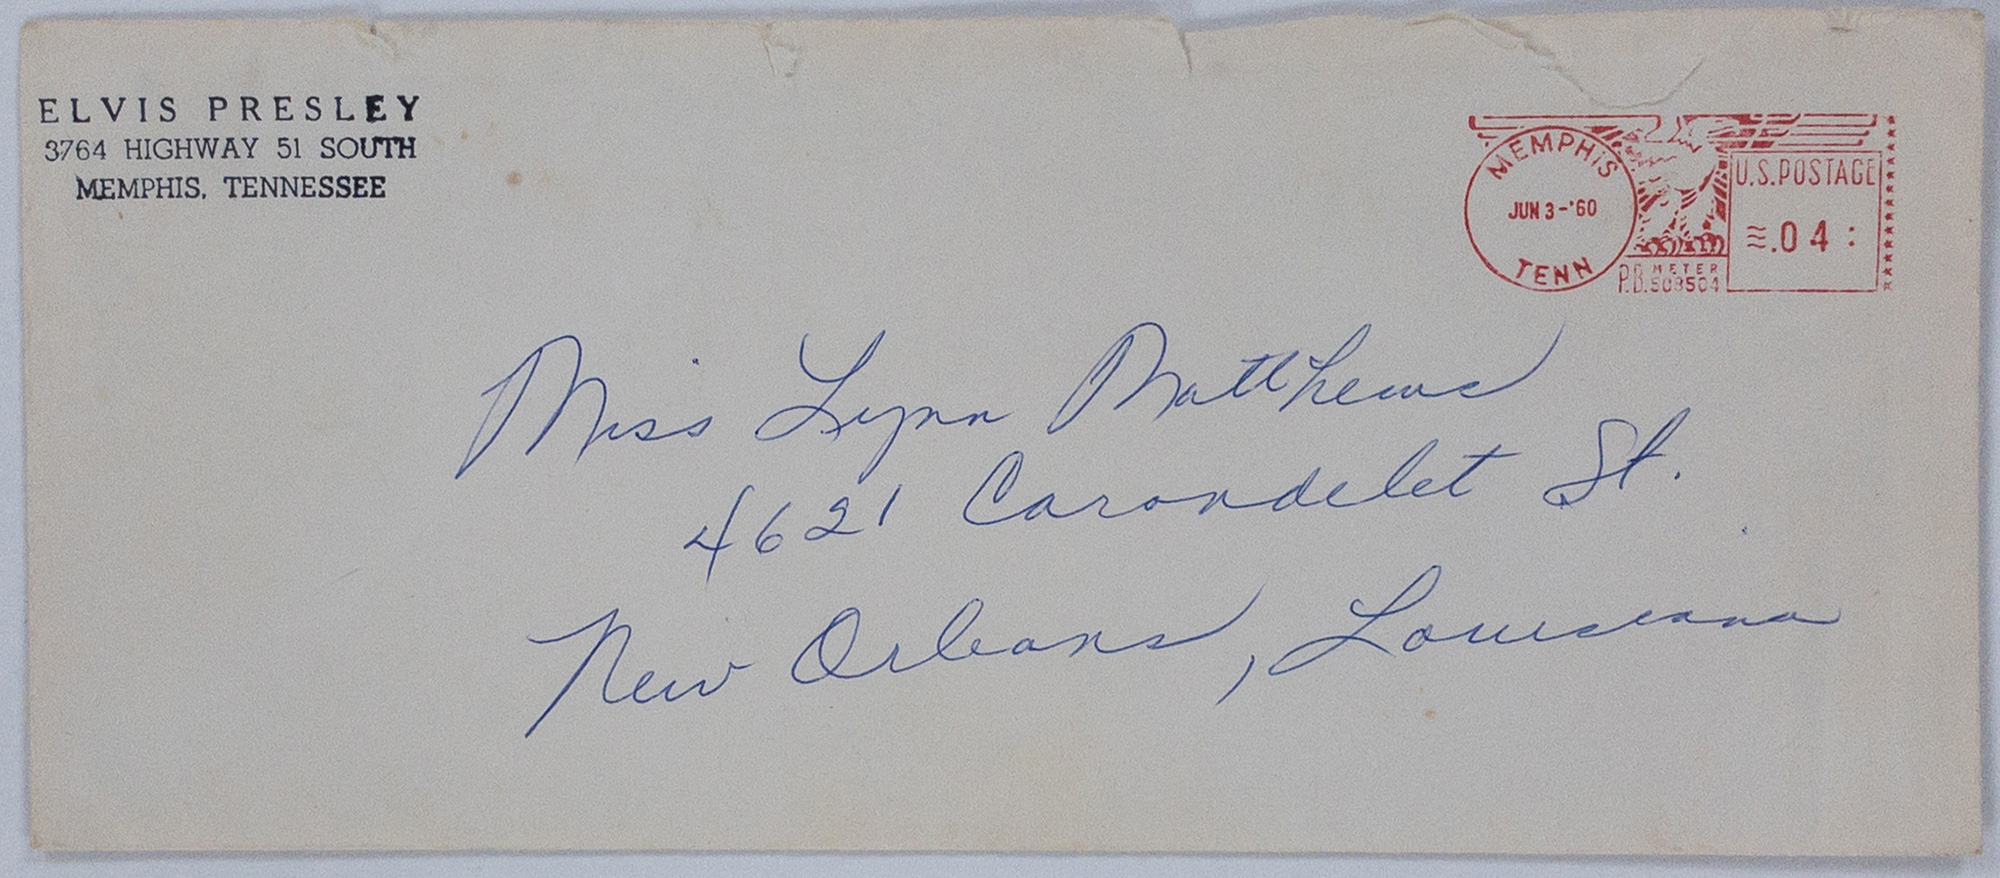 ELVIS PRESLEY
3764 HIGHWAY 51 SOUTH
MEMPHIS, TENNESSEE
MEMPHIS
JUN 3-'60
TENN
U.S.POSTAGE
≈.04:
P.B. METER
508504
Miss Lynn Matthews
4621 Carondelet St.
New Orleans, Louisiana